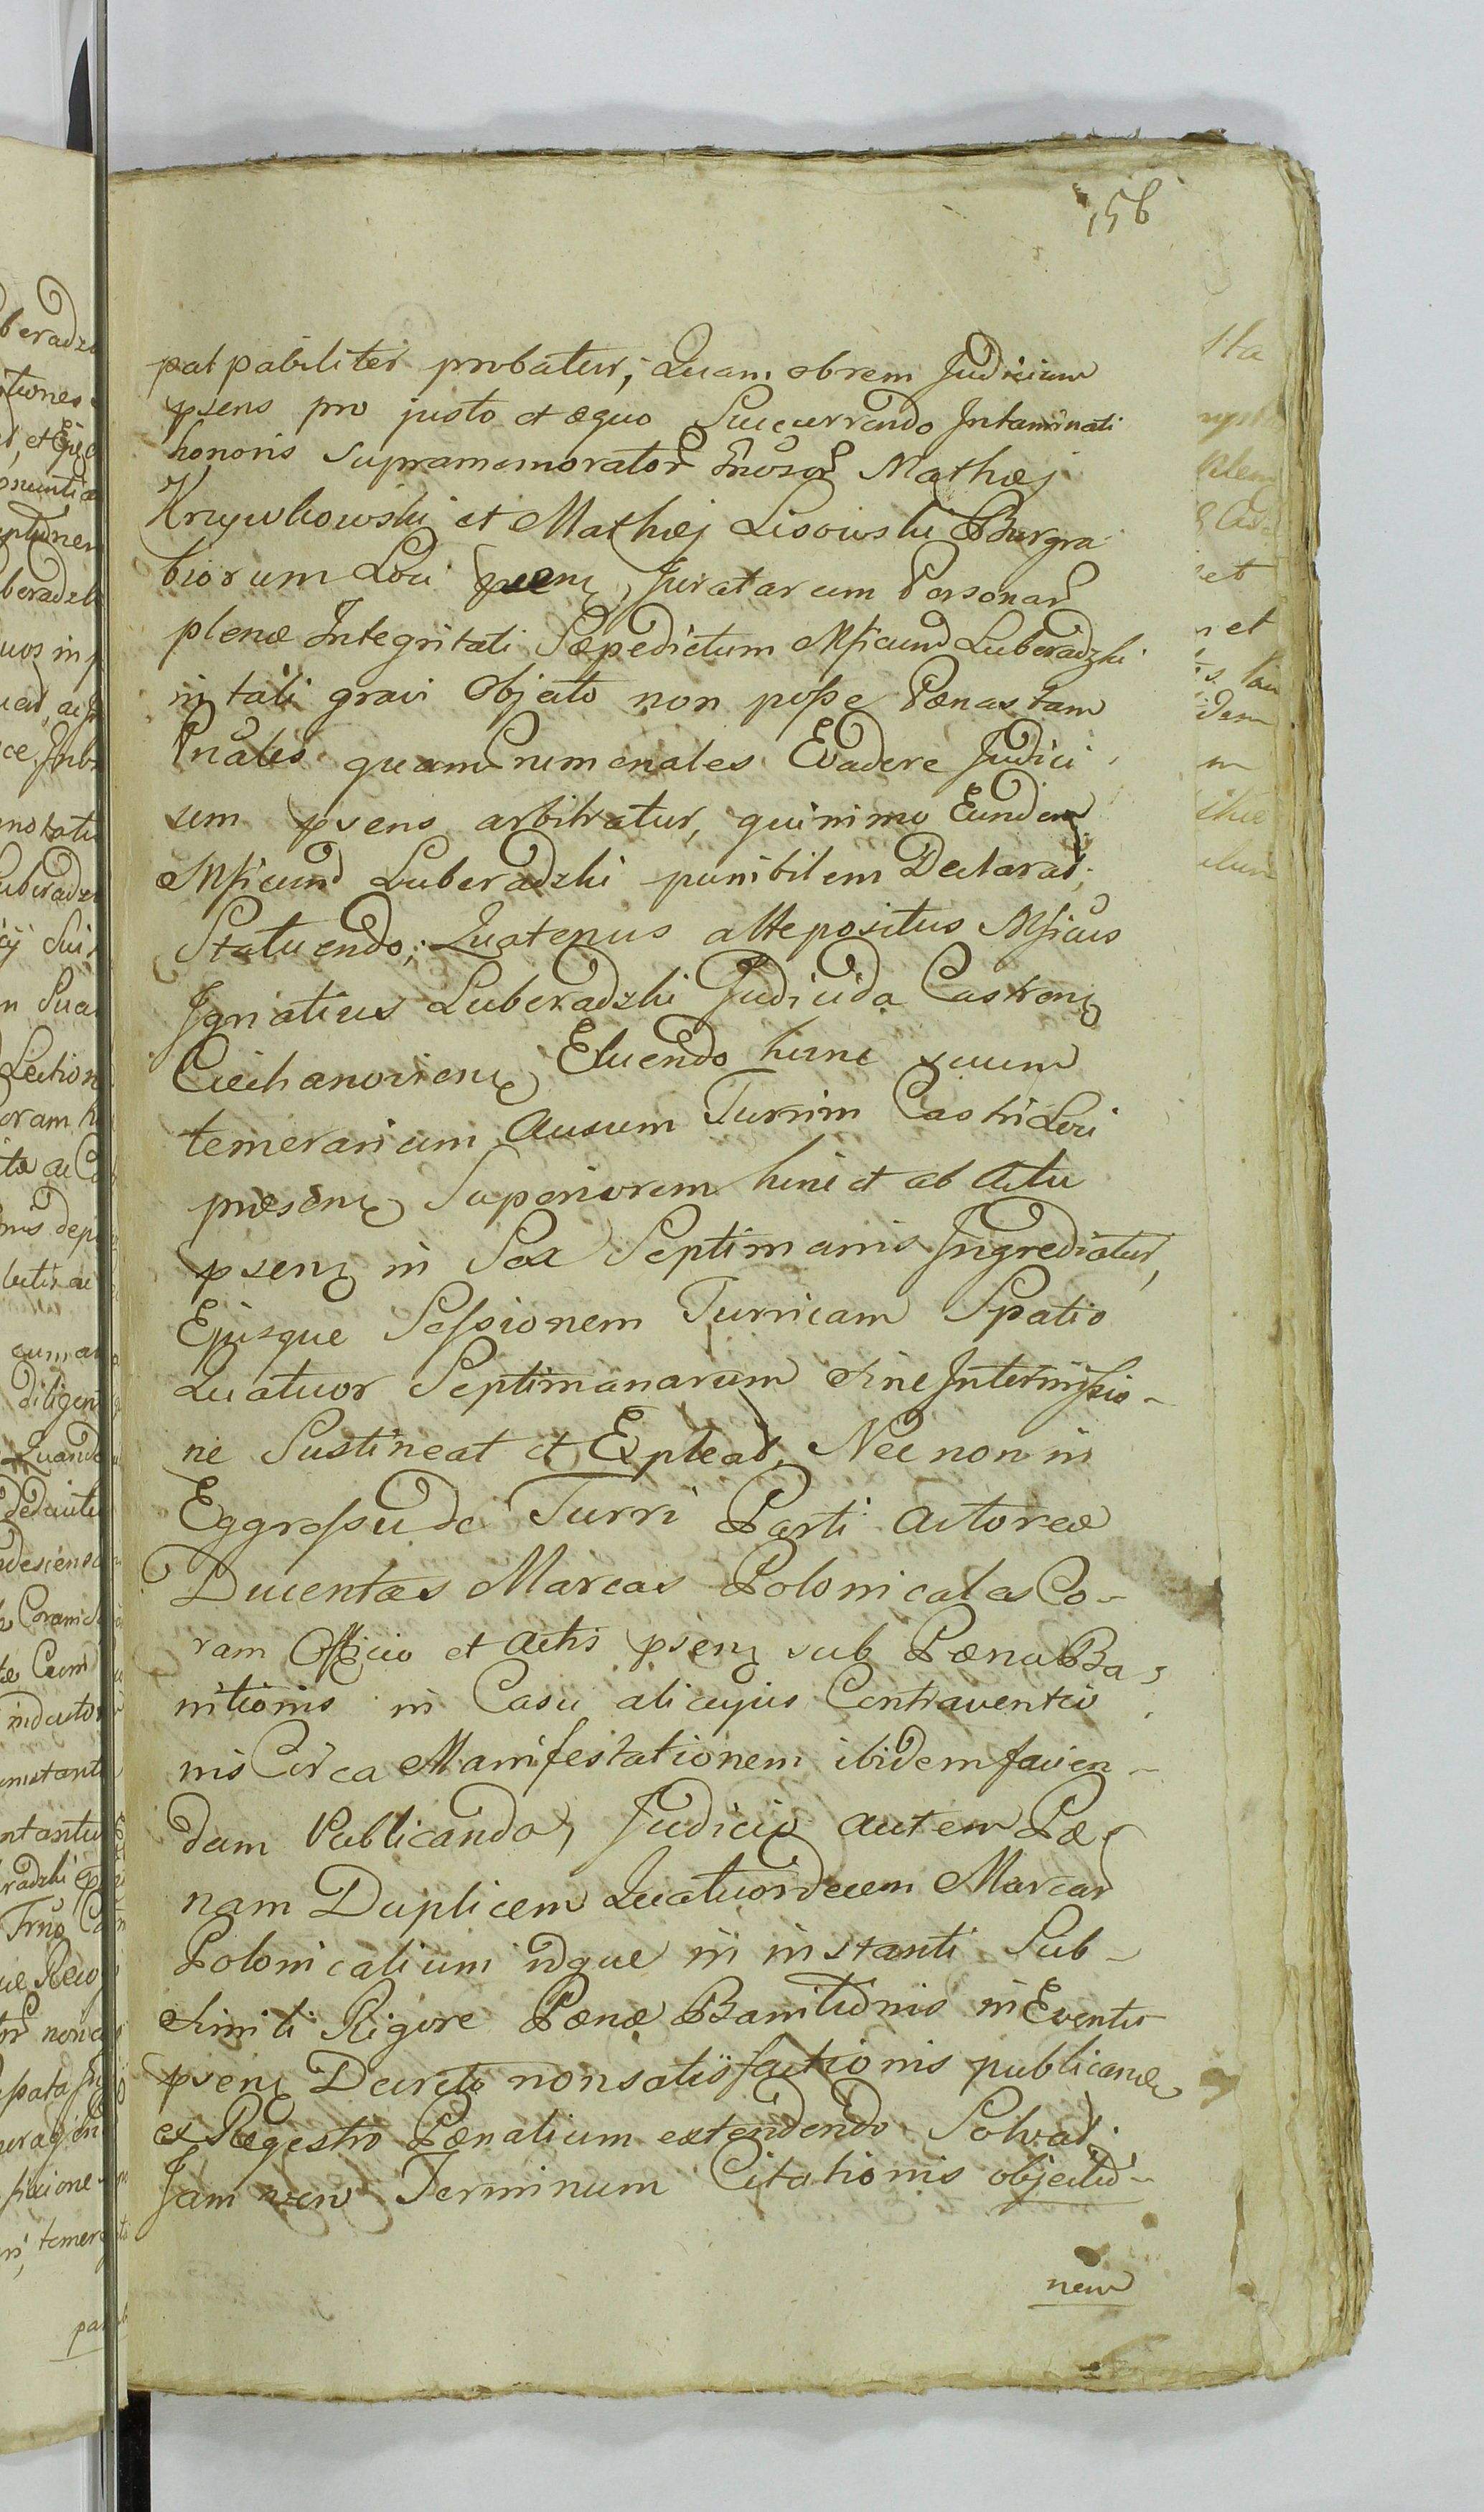 156
palpabiliter probatur, Quam obrem Judicium
psens pro justo et æquo Succurrendo Intaminati
honoris supramemorator Gnosor Mathæj
Krzywkowski et Mathæj Lisowski Burgra
biorum Loci psen, Juratarum Personar
plenæ Integritati, Sæpedictum Mficum Luberadzki
in tali gravi Objecto non posse Pœnas tam
Pnales quam Criminales Evadere Judici
um psens arbitratur, quinimo Eundem
Mficum Luberadzki punibilem Declarat;
Statuendo; Quatenus attepositus Mficus
Ignatius Luberadzki Judicida Castren
Ciechanovien Eluendo hunc suum
temerarium Ausum Turrim Castri Loci
præsen Superiorem hinc et ab Actu
psen in Sex Septimanis Ingrediatur,
Ejusque Sessionem Turricam Spatio
Quatuor Septimanarum sine Intermissio-
ne Sustineat et Expleat, Nec non in
Eggressu de Turri Parti Actoreæ
Ducentas Marcas Polonicales Co-
ram Officio et Actis psen sub Pœna Ba-
nitionis in Casu alicujus Contraventio
nis Circa Manifestationem ibidem facien-
dam Publicanda, Judicio autem Pœ-
nam Duplicem Quatuordecem Marcar
Polonicalium idque in instanti Sub-
simili Rigore Pœnæ Banitionis in Eventu
psen Decreto non satisfactionis publicanda
ex Regestro Pœnalium extendendo Solvat;
Jam Terminum Citationis objectio-
nem